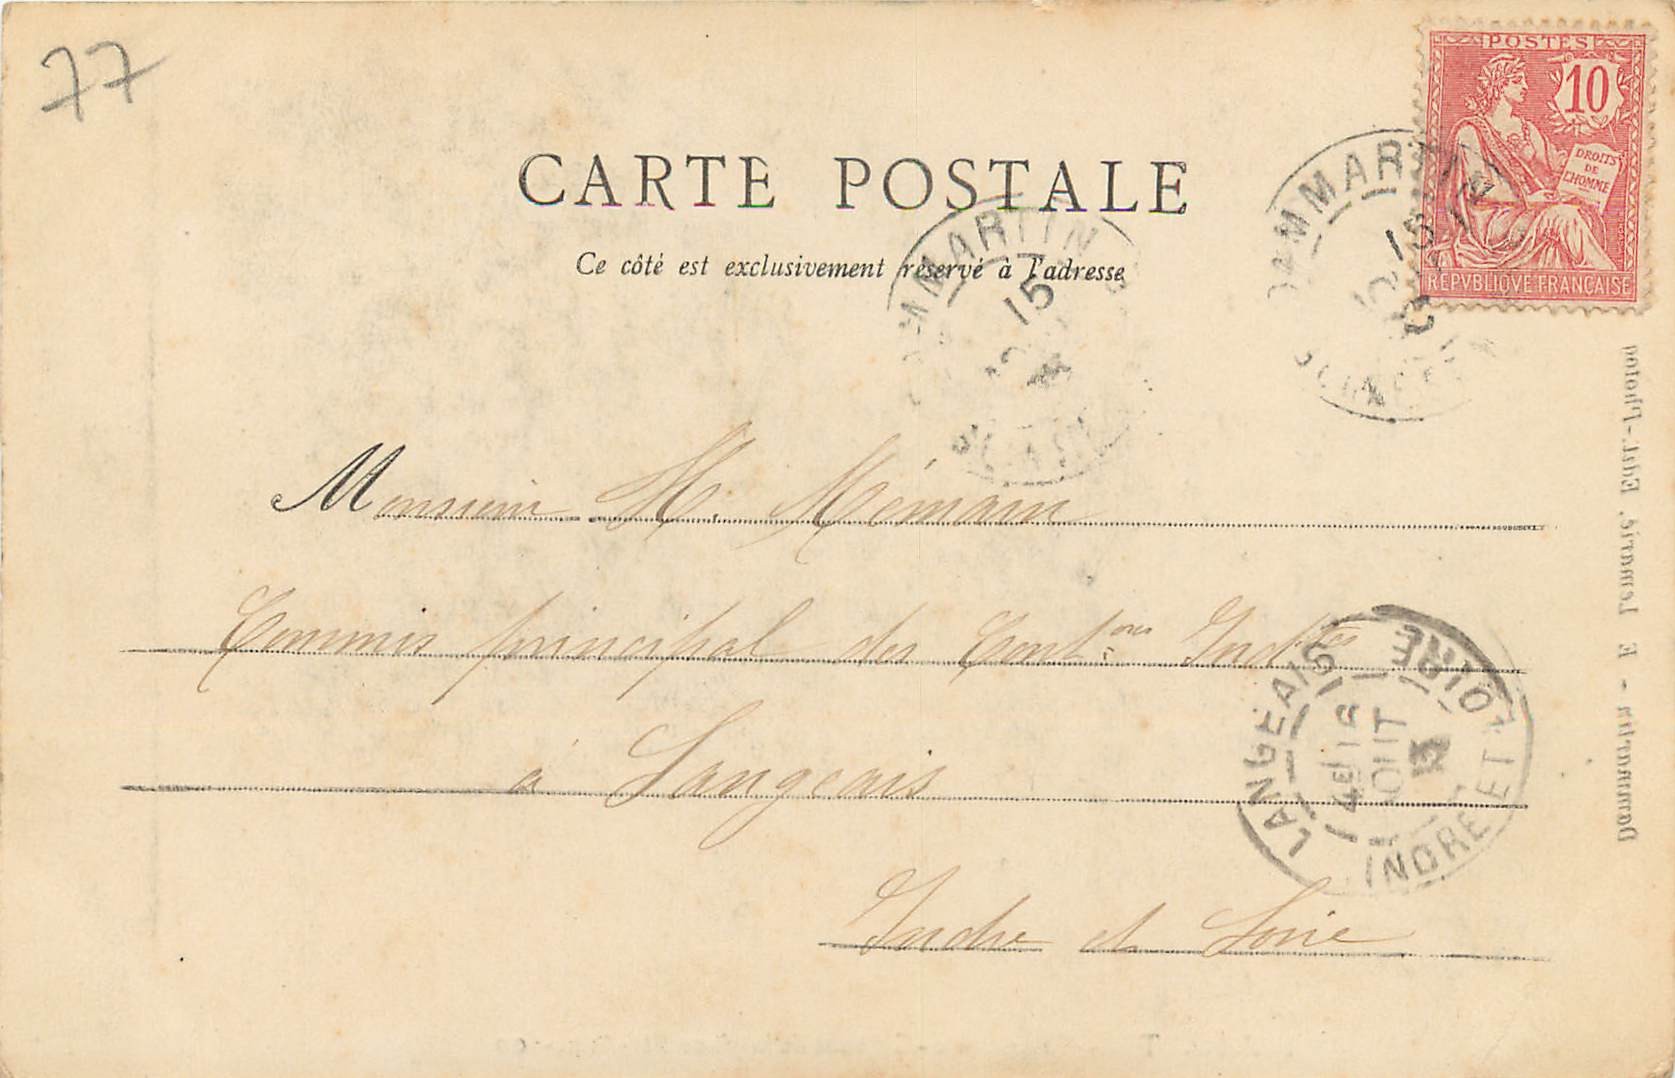 77
POSTES
10
DROITS
DE
L'HOMME
REPVBLIQVE FRANÇAISE
CARTE POSTALE
Ce côté est exclusivement réservé à l'adresse
DAMMARTIN
15
DAMMARTIN
15
Monsieur H. Mémain
Commis principal des Cont.ons Ind.tes
à Langeais
Indre et Loire
LANGEAIS
INDRE ET LOIRE
4E 16
AOUT
Dammartin - E Lemarié, Edit.-Photog